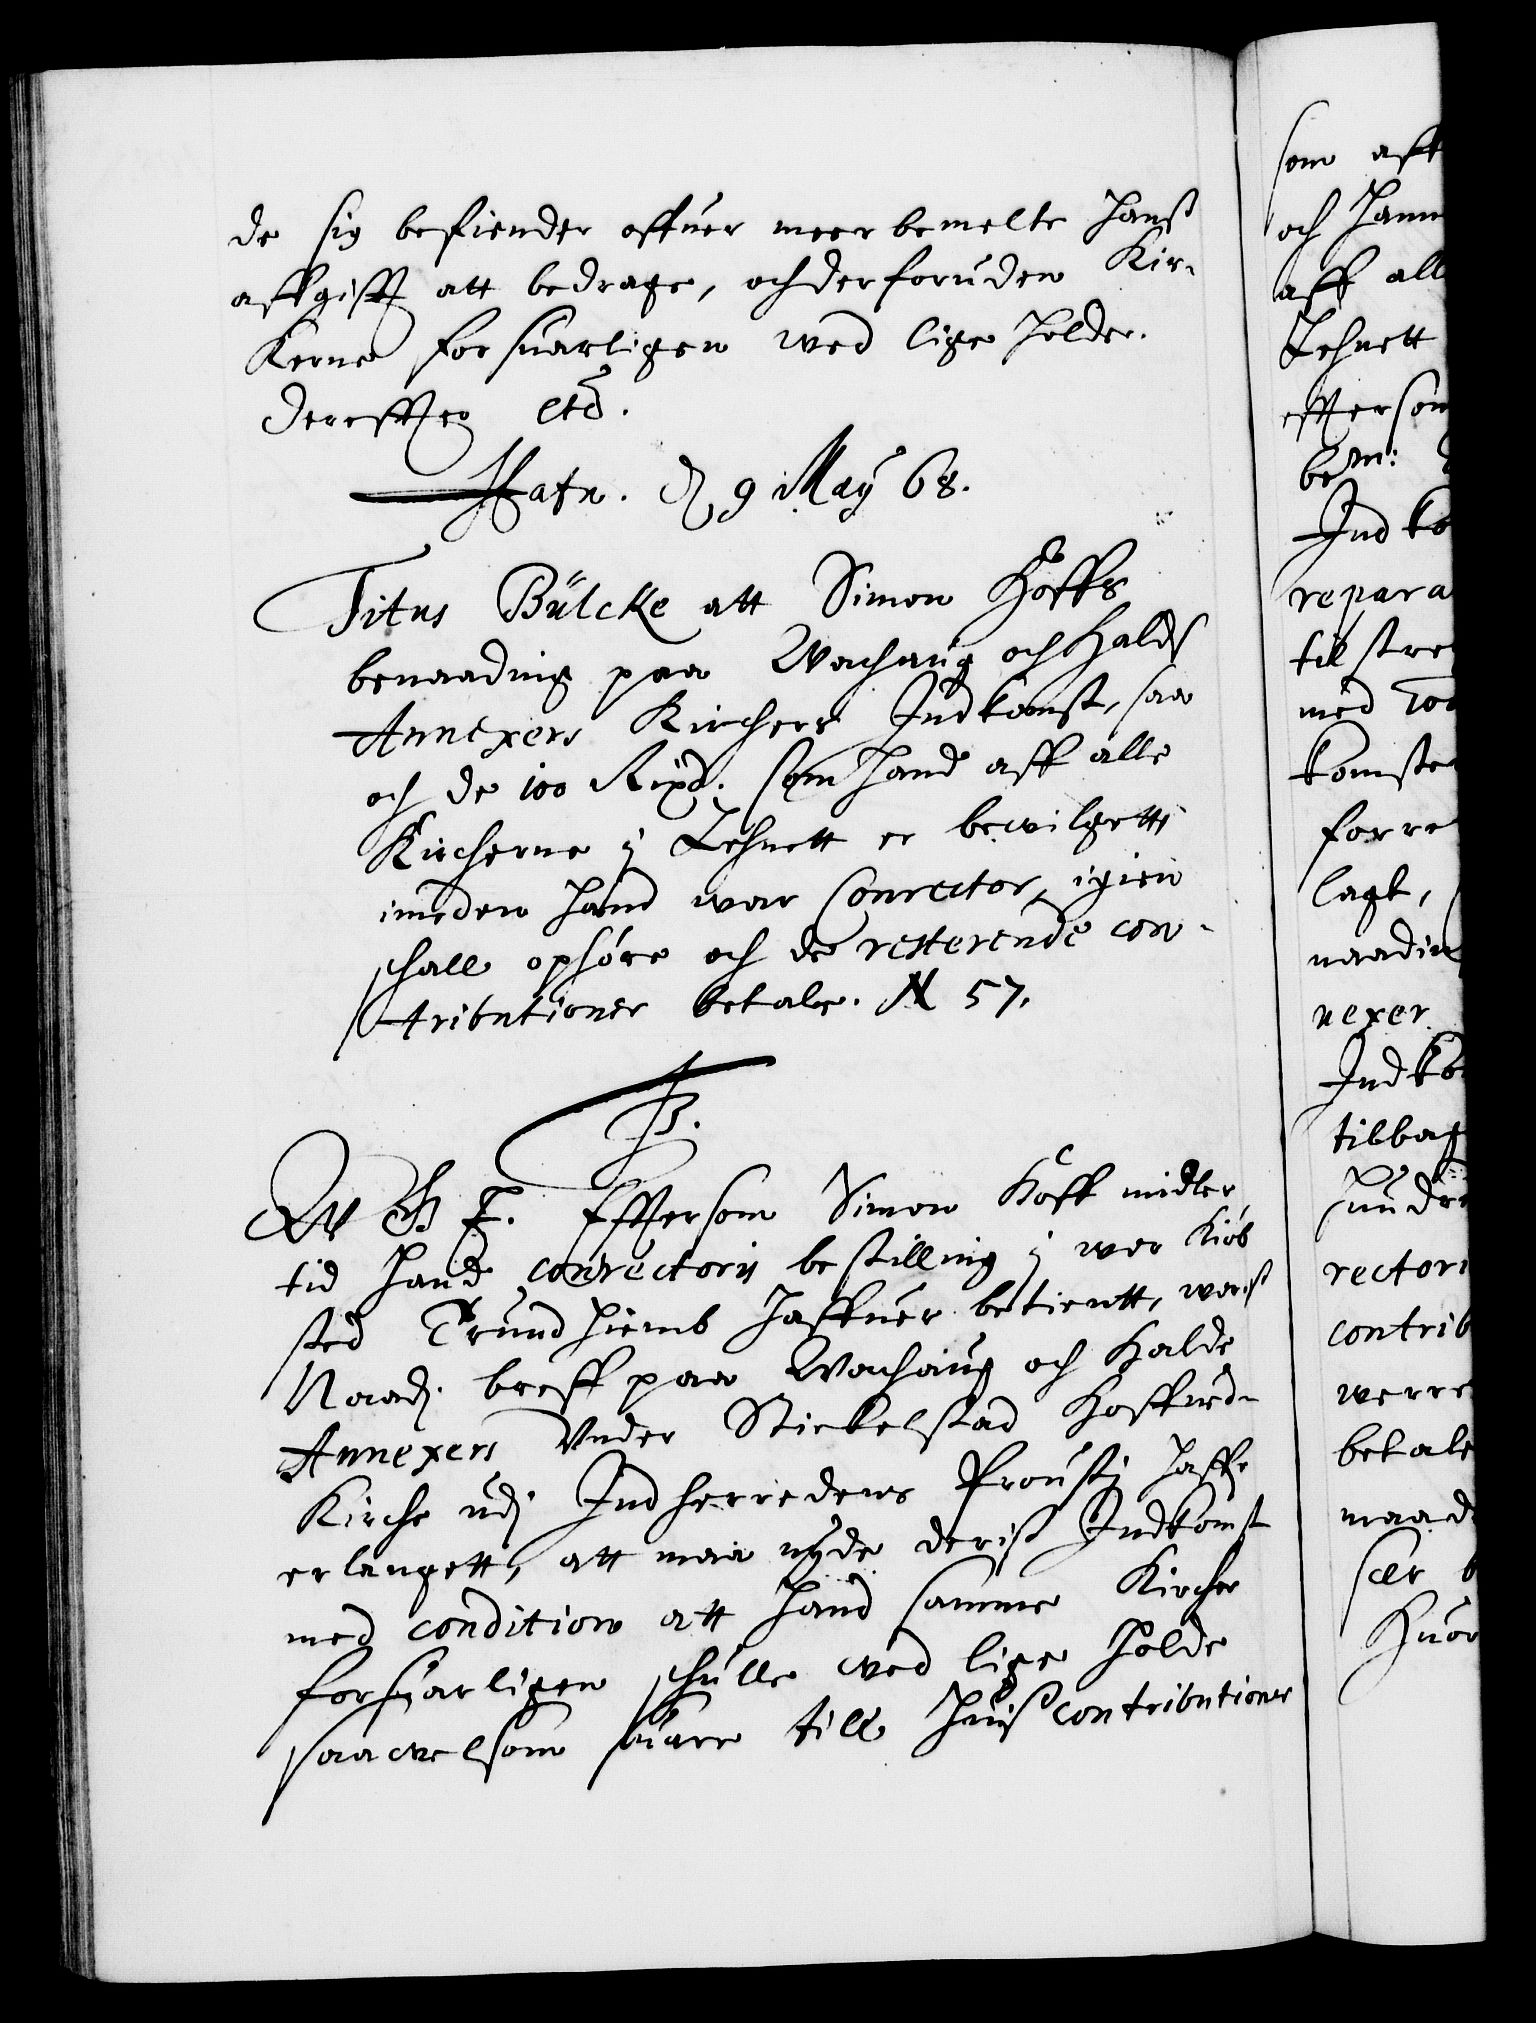 de sig befiender offuer meerbemelte hanß
affgifft att bedrage, och derforuden Kir-
Kerne forsuarligen wed lige holder.
Derefter etc.
Hafn. d 9 May 68.
Titus Bülcke att Simon Hoffs
benaading paa Wachaug och Halds
Annexers Kirchers Indkomst, saa
och de 100 Rixd. som hand aff alle
Kircherne i Lehnett er bewilgett
imeden hand war Conrector, igien
schall ophøre och de resterende con-
tributioner betale. N 57.
F 3.
W G T. Effersom Simon Hoff midler
tid hand conrectoris bestilling i wor Kiøb
sted Trundhiemb haffuer betientt, worst
Naad. breff paa Wachaug och Halde
Annexer Vnder Stickelstad Hoffued-
Kirche udj Indherredens Proustj haffr
erlangett, att maa nyde deris Indkomst
med condition att hand samme Kircher
forsuarligen schulle wed lige holde
saauelsom suare till huis contributioner
som aff
och hann
aff all
Lehnett
effersom
bem:
Indko
repara
til stre
med
komste
forre
lagt,
naadin
nexer
Indko
tilbag
hundre
rectori
contrib
werre
betale
maad
sær
Huor